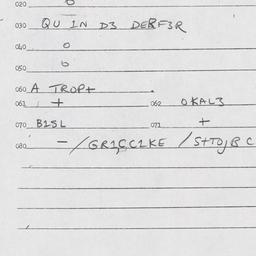 020 o
030 QU IN D3 DERF3R
040 o
050 o
060 A TROP+
061 + 062 OKAL3
070 B1SL 071 +
080 - /GR1GC1KE /S++OJB C